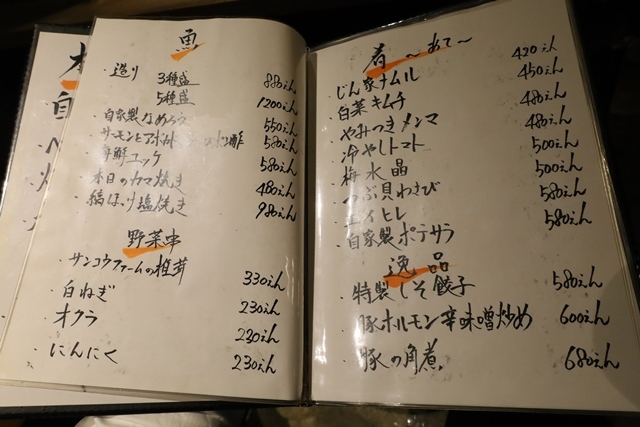 魚
・造り 3種盛 880えん
5種盛 1200えん
・自家製なめろう 550えん
サーモンとアボカド 酢 580えん
・海鮮ユッケ 580えん
・本日のカマ焼き 480えん
・縞ほっけ塩焼き 980えん
野菜串
・サンコウファームの椎茸 330えん
・白ねぎ 230えん
・オクラ 230えん
・にんにく 230えん
肴 〜あて〜
・じん家ナムル 420えん
・白菜キムチ 450えん
・やみつきメンマ 480えん
・冷やしトマト 480えん
・梅水晶 500えん
・つぶ貝わさび 500えん
・エイヒレ 580えん
・自家製ポテサラ 580えん
逸品
・特製しそ餃子 580えん
・豚ホルモン辛味噌炒め 600えん
・豚の角煮 680えん